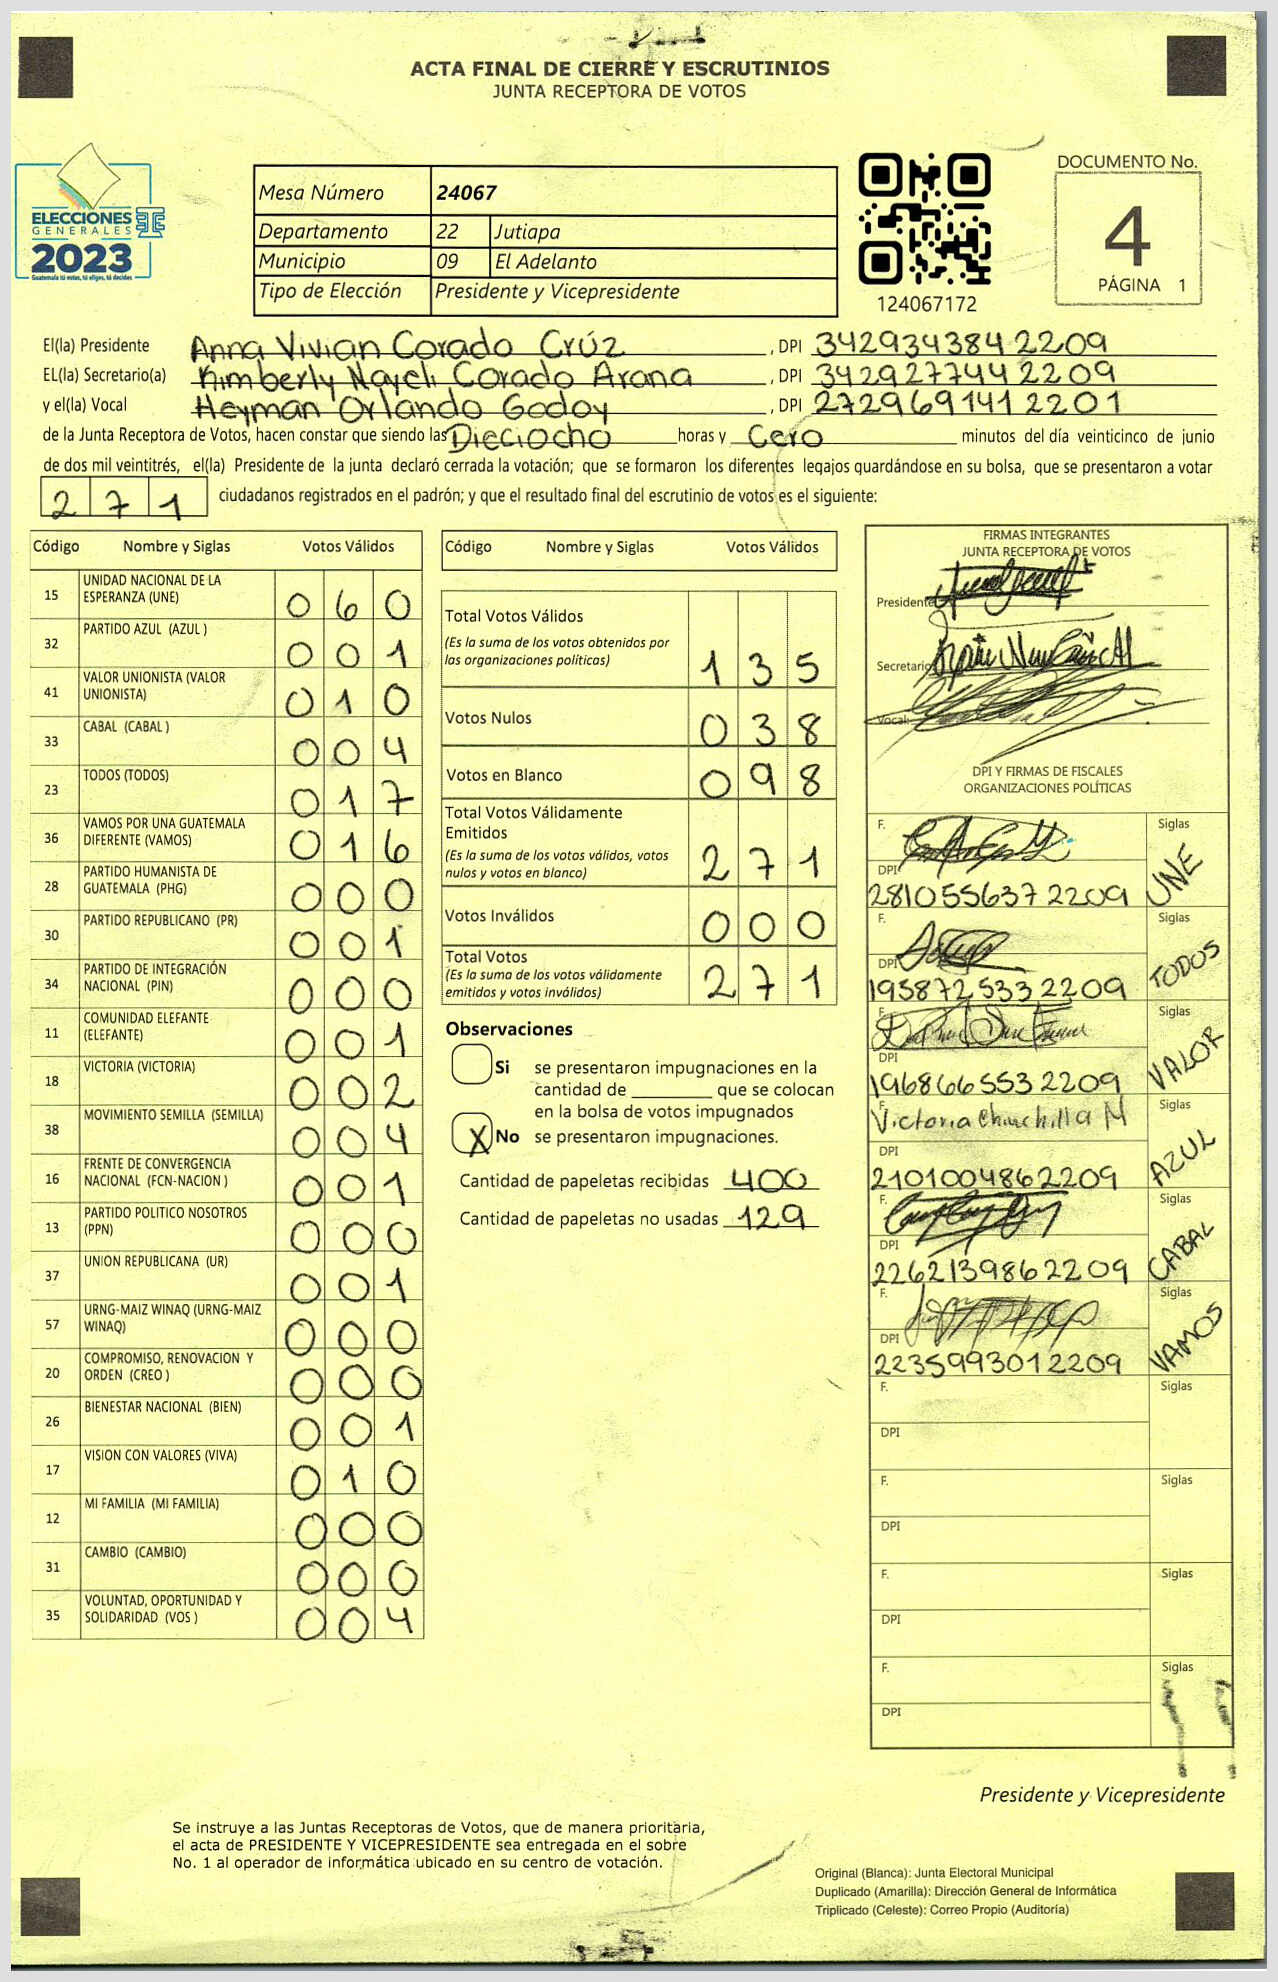 ACTA FINAL DE CIERRE Y ESCRUTINIOS
JUNTA RECEPTORA DE VOTOS
ELECCIONES
GENERALES
2023
Guatemala tú eres, tú eliges, tú decides
Mesa Número 24067
Departamento 22 Jutiapa
Municipio 09 El Adelanto
Tipo de Elección Presidente y Vicepresidente
124067172
DOCUMENTO No.
4
PÁGINA 1
El(la) Presidente Anna Vivian Corado Crúz , DPI 342934384 2209
EL(la) Secretario(a) Kimberly Nayeli Corado Arana , DPI 342927744 2209
y el(la) Vocal Heyman Orlando Godoy , DPI 272969141 2201
de la Junta Receptora de Votos, hacen constar que siendo las Dieciocho horas y Cero minutos del día veinticinco de junio
de dos mil veintitrés, el(la) Presidente de la junta declaró cerrada la votación; que se formaron los diferentes legajos guardándose en su bolsa, que se presentaron a votar
271 ciudadanos registrados en el padrón; y que el resultado final del escrutinio de votos es el siguiente:
Código Nombre y Siglas Votos Válidos
15 UNIDAD NACIONAL DE LA ESPERANZA (UNE) 060
32 PARTIDO AZUL (AZUL ) 001
41 VALOR UNIONISTA (VALOR UNIONISTA) 010
33 CABAL (CABAL ) 004
23 TODOS (TODOS) 017
36 VAMOS POR UNA GUATEMALA DIFERENTE (VAMOS) 016
28 PARTIDO HUMANISTA DE GUATEMALA (PHG) 000
30 PARTIDO REPUBLICANO (PR) 001
34 PARTIDO DE INTEGRACIÓN NACIONAL (PIN) 000
11 COMUNIDAD ELEFANTE (ELEFANTE) 001
18 VICTORIA (VICTORIA) 002
38 MOVIMIENTO SEMILLA (SEMILLA) 004
16 FRENTE DE CONVERGENCIA NACIONAL (FCN-NACION ) 001
13 PARTIDO POLITICO NOSOTROS (PPN) 000
37 UNION REPUBLICANA (UR) 001
57 URNG-MAIZ WINAQ (URNG-MAIZ WINAQ) 000
20 COMPROMISO, RENOVACION Y ORDEN (CREO ) 000
26 BIENESTAR NACIONAL (BIEN) 001
17 VISION CON VALORES (VIVA) 010
12 MI FAMILIA (MI FAMILIA) 000
31 CAMBIO (CAMBIO) 000
35 VOLUNTAD, OPORTUNIDAD Y SOLIDARIDAD (VOS ) 004
Código Nombre y Siglas Votos Válidos
Total Votos Válidos
(Es la suma de los votos obtenidos por las organizaciones políticas) 135
Votos Nulos 038
Votos en Blanco 098
Total Votos Válidamente Emitidos
(Es la suma de los votos válidos, votos nulos y votos en blanco) 271
Votos Inválidos 000
Total Votos
(Es la suma de los votos válidamente emitidos y votos inválidos) 271
Observaciones
Si se presentaron impugnaciones en la
cantidad de ________ que se colocan
en la bolsa de votos impugnados
X No se presentaron impugnaciones.
Cantidad de papeletas recibidas 400
Cantidad de papeletas no usadas 129
FIRMAS INTEGRANTES
JUNTA RECEPTORA DE VOTOS
Presidente
Secretario
Vocal:
DPI Y FIRMAS DE FISCALES
ORGANIZACIONES POLÍTICAS
F. Siglas
DPI 281055637 2209 UNE
F. Siglas
DPI 195872533 2209 TODOS
F. Siglas
DPI 196866553 2209 VALOR
F. Victoria Chinchilla M Siglas
DPI 210100486 2209 AZUL
F. Siglas
DPI 226213986 2209 CABAL
F. Siglas
DPI 223599301 2209 VAMOS
F. Siglas
DPI
F. Siglas
DPI
F. Siglas
DPI
F. Siglas
DPI
Presidente y Vicepresidente
Se instruye a las Juntas Receptoras de Votos, que de manera prioritaria,
el acta de PRESIDENTE Y VICEPRESIDENTE sea entregada en el sobre
No. 1 al operador de informática ubicado en su centro de votación.
Original (Blanca): Junta Electoral Municipal
Duplicado (Amarilla): Dirección General de Informática
Triplicado (Celeste): Correo Propio (Auditoría)